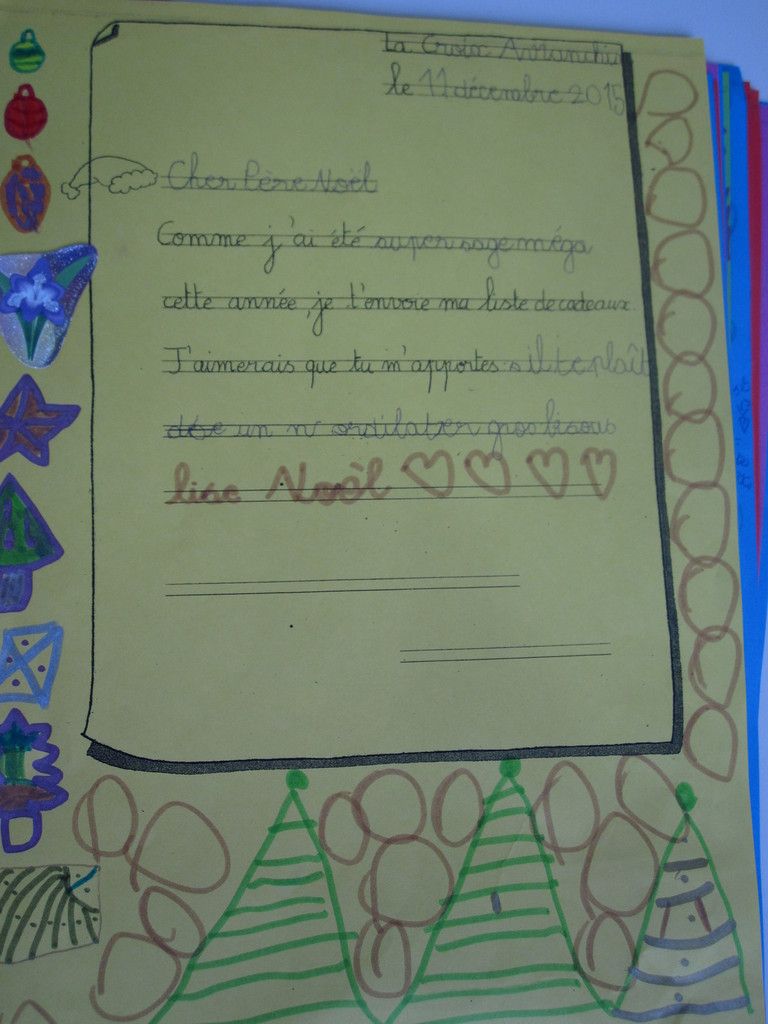 La Croix Avranchin
le 11 décembre 2015
Cher Père Noël
Comme j'ai été super sage méga
cette année, je t'envoie ma liste de cadeaux.
J'aimerais que tu m'apportes s'il te plaît
un n ordilater gros bisous
lise Noël